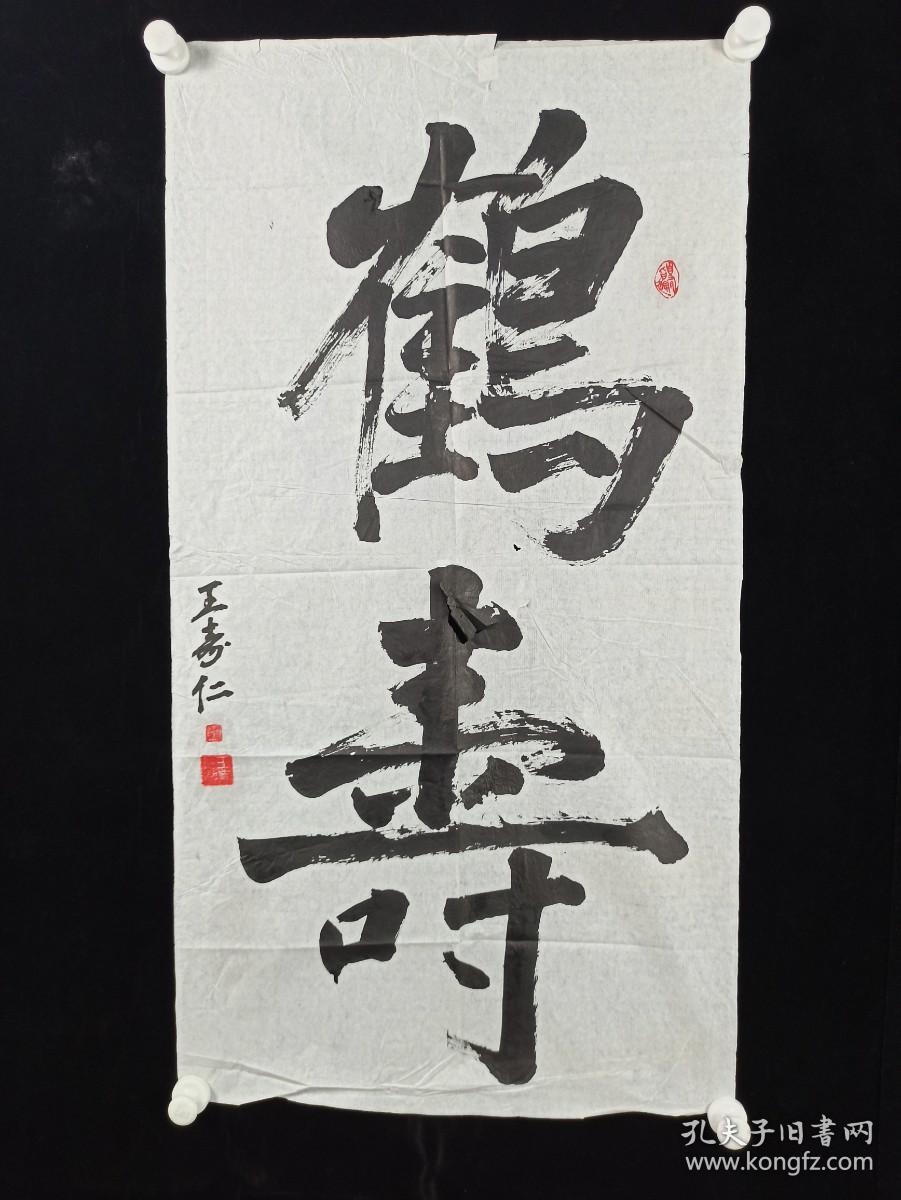 鶴壽
王寿仁
孔夫子旧書网
www.kongfz.com